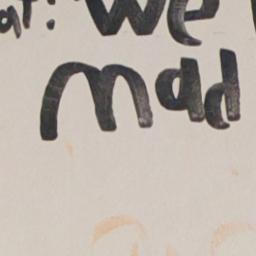 at: "We
mad